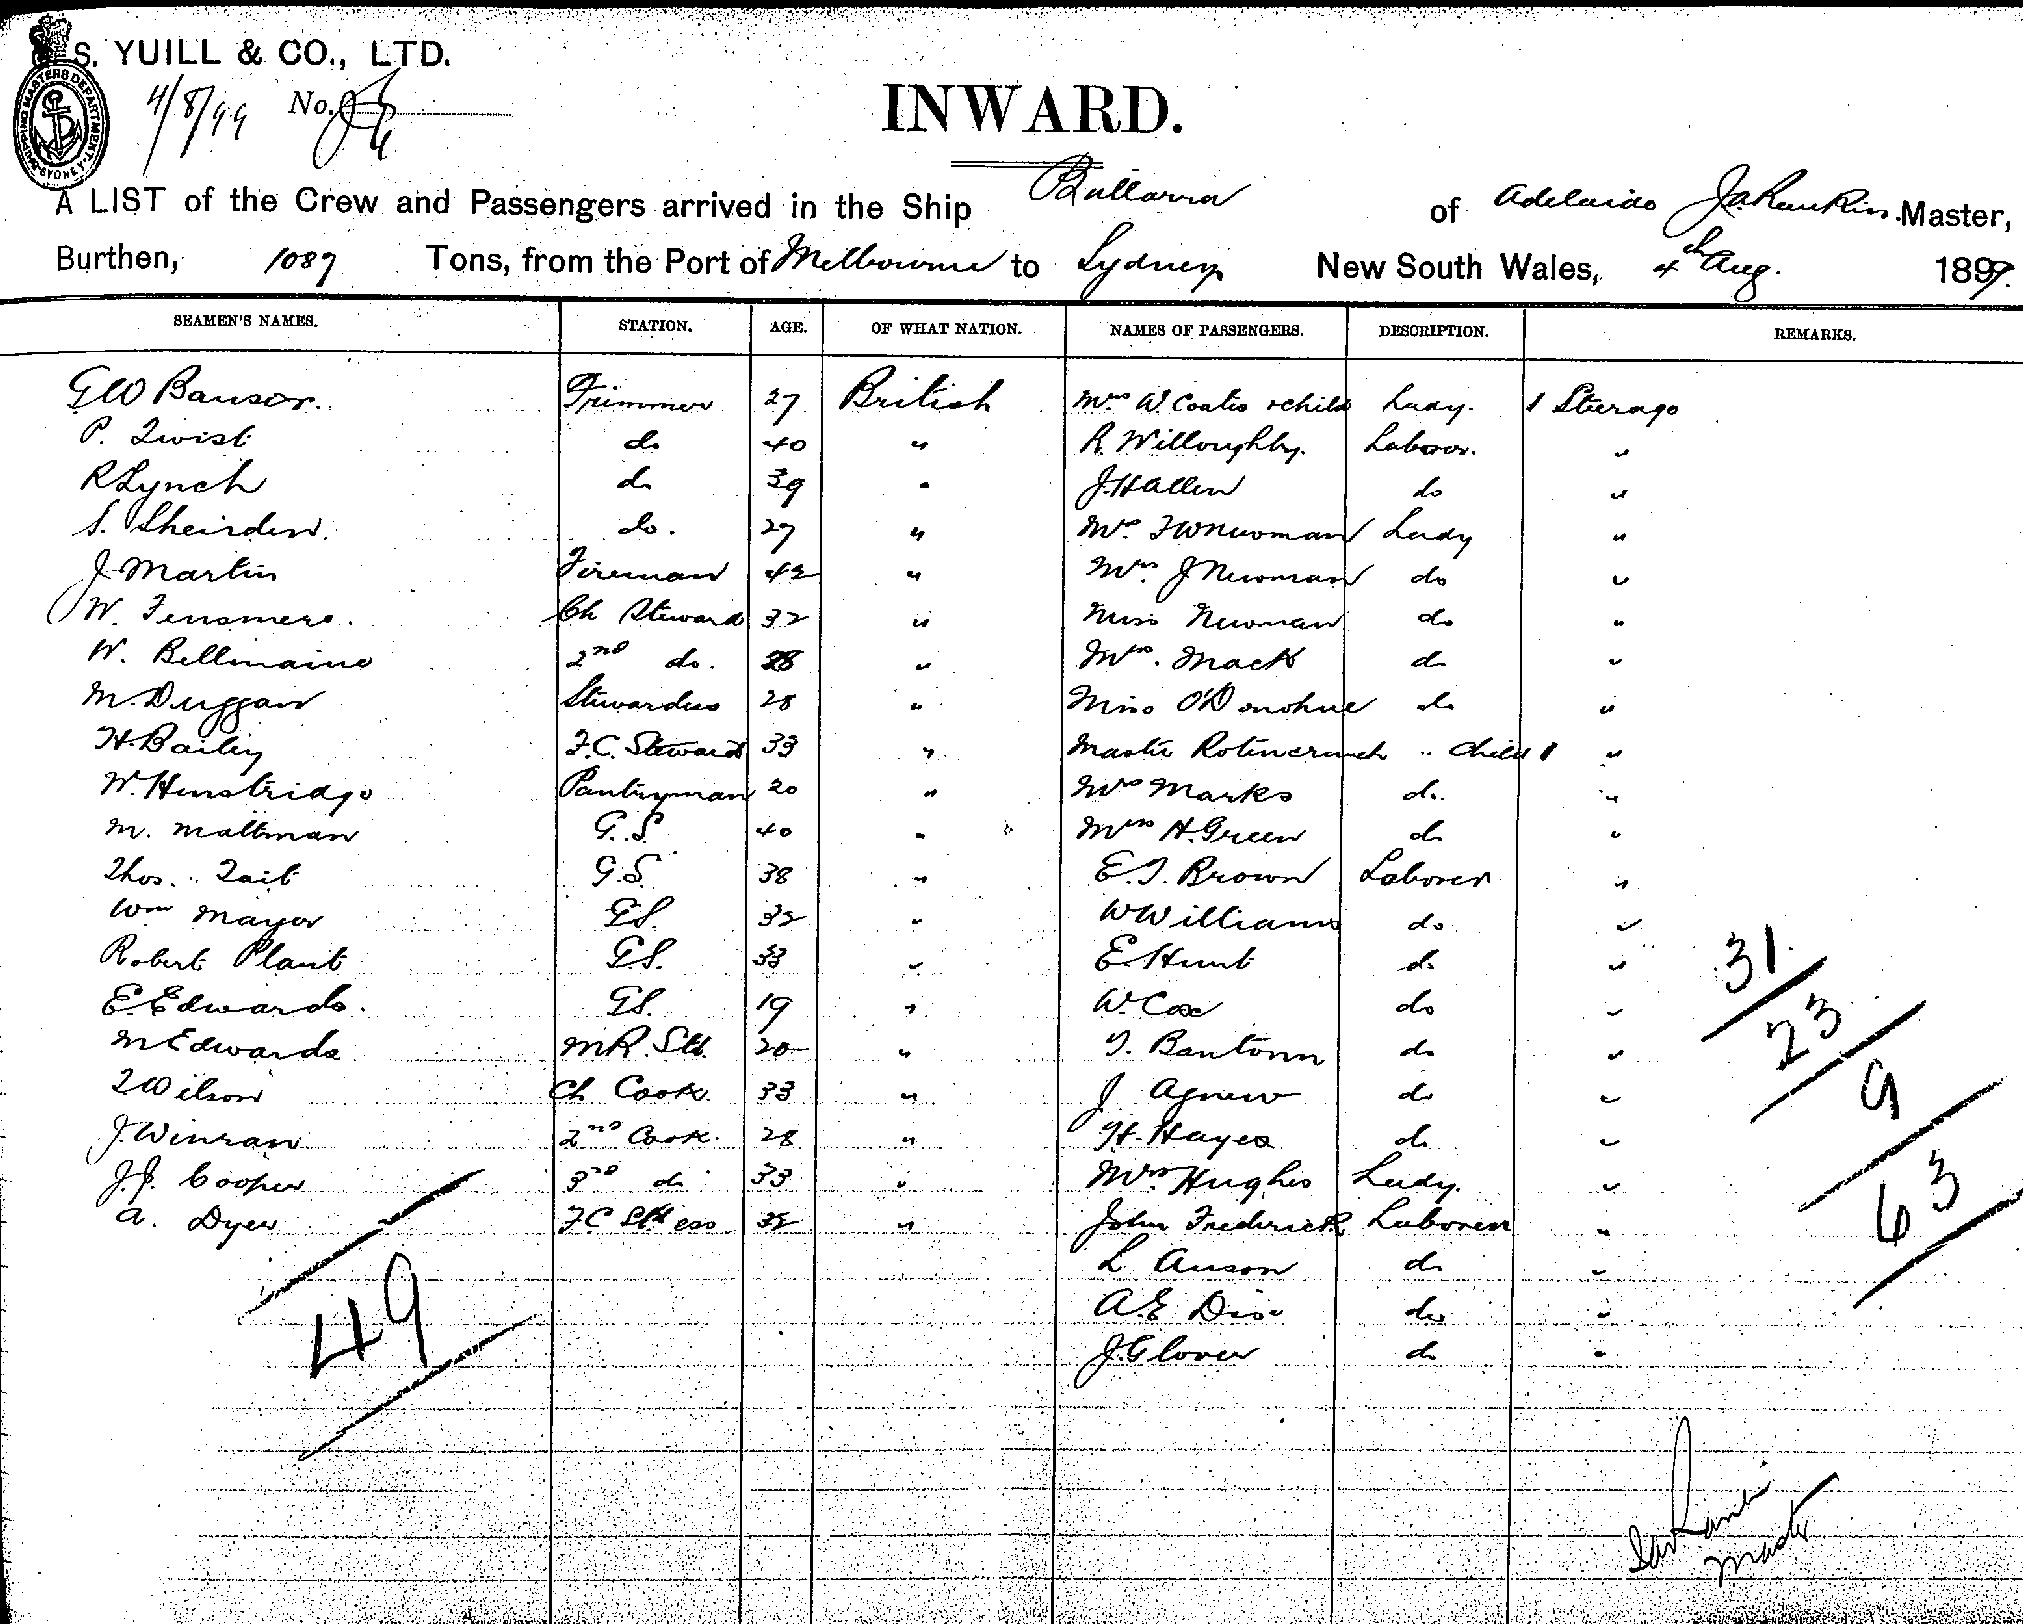 S. YUILL & CO., LTD.
SHIPPING MASTERS DEPARTMENT SYDNEY
4/8/99 No.
INWARD.
A LIST of the Crew and Passengers arrived in the Ship Bullarra of Adelaide J.A. Rankin. Master,
Burthen, 1087 Tons, from the Port of Melbourne to Sydney New South Wales, 4th Aug. 1899.
SEAMEN'S NAMES. STATION. AGE. OF WHAT NATION. NAMES OF PASSENGERS. DESCRIPTION. REMARKS.
G W Bansor. Trimmer 27 British Mrs W. Coates & child Lady. 1 Steerage
P. Twist do 40 " R. Willoughby. Laborer. "
R Lynch do 39 " J. Hallen do "
S. Sheirden. do. 27 " Mrs F W Newman Lady "
J. Martin Fireman 42 " Mrs J Newman do "
W. Fensmere. Ch Steward 32 " Miss Newman do "
W. Bellmaine 2nd do. 28 " Mrs. Mack do "
M. Duggan Stewardess 28 " Miss O'Donohue do "
H. Bailey F.C. Steward 33 " Master " Child 1 "
W. Henstridge Pantryman 20 " Mrs Marks do. "
M. Maltman G.S. 40 " Mrs H. Green do "
Thos. Tait G.S. 38 " E. J. Brown Laborer "
Wm Mayor GS. 32 " W Williams do "
Robert Plant G.S. 33 " E. Hunt do "
E. Edwards. GS. 19 " W. Cox do "
M Edwards M.R. Std. 20 " T. Bantonn do "
T Wilson Ch Cook. 33 " J Agnew do "
J. Winran 2nd Cook. 28 " H. Hayes do "
J. J. Cooper 3rd do 33 " Mrs Hughes Lady. "
A. Dyer F.C Stdess 32 " John Frederick Laborer "
L Anson do "
A. E Dix do "
J. Glover do "
49
31
23
9
63
Jas Rankin
Master